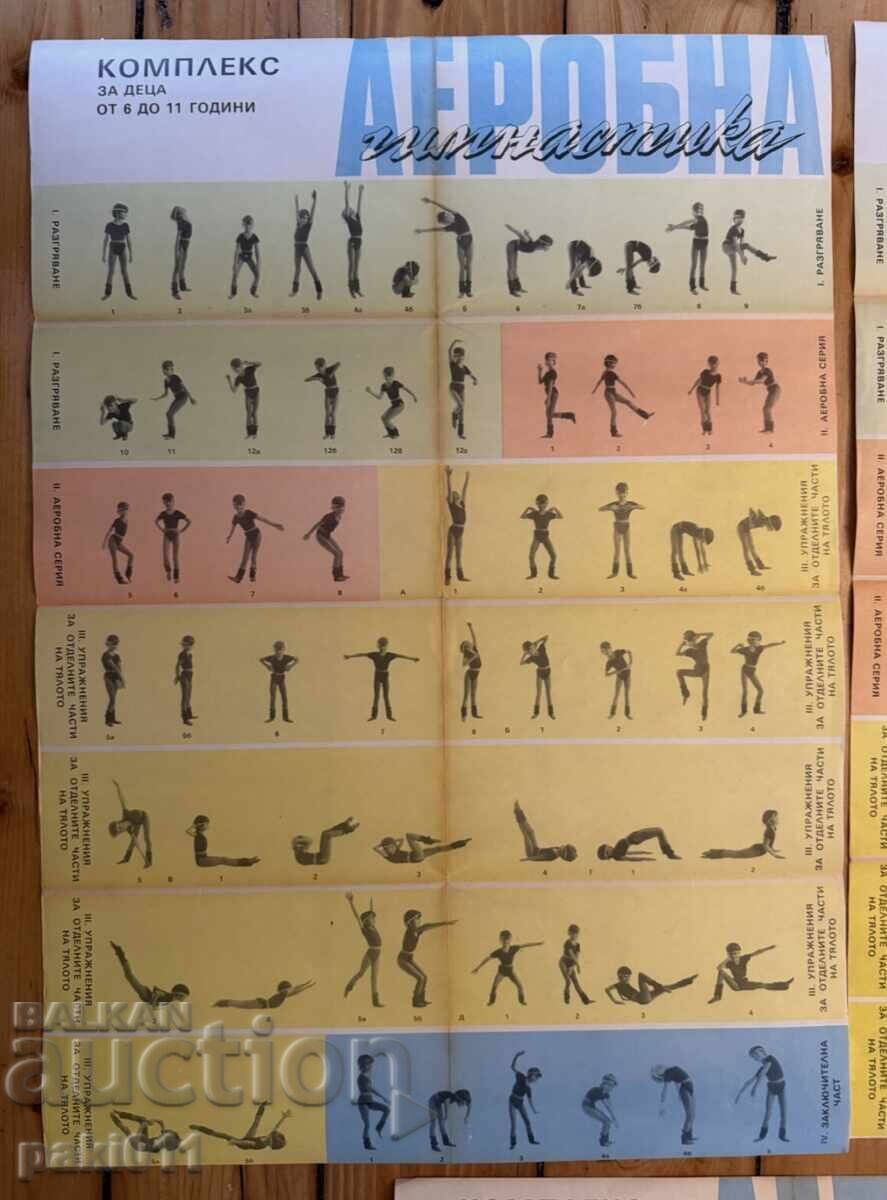 КОМПЛЕКС
ЗА ДЕЦА
ОТ 6 ДО 11 ГОДИНИ
АЕРОБНА
гимнастика
I. РАЗГРЯВАНЕ
I. РАЗГРЯВАНЕ
1 2 3а 3б 4а 4б 5 6 7а 7б 8 9
I. РАЗГРЯВАНЕ
II. АЕРОБНА СЕРИЯ
10 11 12а 12б 12в 12г 1 2 3 4
II. АЕРОБНА СЕРИЯ
III. УПРАЖНЕНИЯ
ЗА ОТДЕЛНИТЕ ЧАСТИ
НА ТЯЛОТО
5 6 7 8 А 1 2 3 4а 4б
III. УПРАЖНЕНИЯ
ЗА ОТДЕЛНИТЕ ЧАСТИ
НА ТЯЛОТО
III. УПРАЖНЕНИЯ
ЗА ОТДЕЛНИТЕ ЧАСТИ
НА ТЯЛОТО
5а 5б 6 7 8 Б 1 2 3 4
III. УПРАЖНЕНИЯ
ЗА ОТДЕЛНИТЕ ЧАСТИ
НА ТЯЛОТО
III. УПРАЖНЕНИЯ
ЗА ОТДЕЛНИТЕ ЧАСТИ
НА ТЯЛОТО
5 В 1 2 3 4 Г 1 2
III. УПРАЖНЕНИЯ
ЗА ОТДЕЛНИТЕ ЧАСТИ
НА ТЯЛОТО
III. УПРАЖНЕНИЯ
ЗА ОТДЕЛНИТЕ ЧАСТИ
НА ТЯЛОТО
5а 5б Д 1 2 3 4
III. УПРАЖНЕНИЯ
ЗА ОТДЕЛНИТЕ ЧАСТИ
НА ТЯЛОТО
IV. ЗАКЛЮЧИТЕЛНА
ЧАСТ
5а 5б 1 2 3 4а 4б 5
I. РАЗГРЯВАНЕ
I. РАЗГРЯВАНЕ
II. АЕРОБНА СЕРИЯ
II. АЕРОБНА СЕРИЯ
III. УПРАЖНЕНИЯ
ЗА ОТДЕЛНИТЕ ЧАСТИ
НА ТЯЛОТО
III. УПРАЖНЕНИЯ
ЗА ОТДЕЛНИТЕ ЧАСТИ
НА ТЯЛОТО
BALKAN
auction
paki011